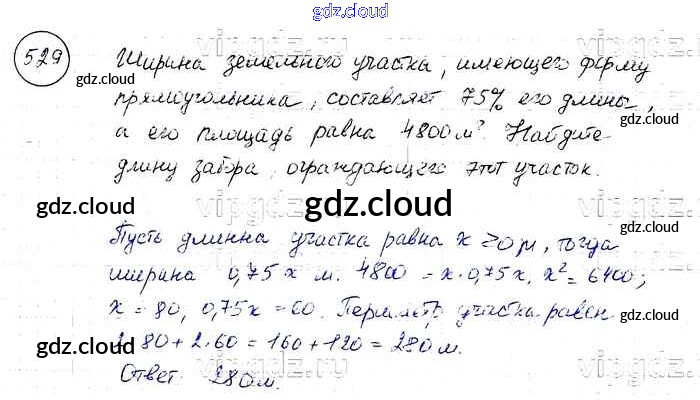 gdz.cloud
529
Ширина земельного участка, имеющего форму
gdz.cloud
прямоугольника, составляет 75% его длины,
gdz.cloud
а его площадь равна 4800 м². Найдите
длину забора, ограждающего этот участок.
gdz.cloud gdz.cloud gdz.cloud
Пусть длинна участка равна x >0 м, тогда
ширина 0,75x м. 4800 = x·0,75x, x² = 6400;
x = 80, 0,75x = 60. Периметр участка равен
2·80+2·60 = 160+120 = 280м.
gdz.cloud gdz.cloud
Ответ 280м.
gdz.cloud